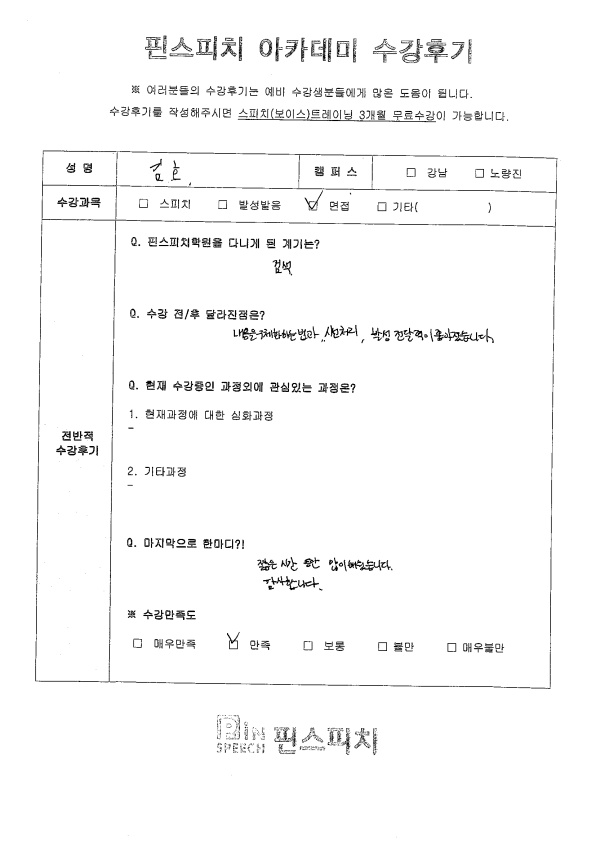 핀스피치 아카데미 수강후기
※ 여러분들의 수강후기는 예비 수강생분들에게 많은 도움이 됩니다.
수강후기를 작성해주시면 스피치(보이스)트레이닝 3개월 무료수강이 가능합니다.
성 명 김호 캠퍼스 □ 강남 □ 노량진
수강과목 □ 스피치 □ 발성발음 ☑ 면접 □ 기타( )
Q. 핀스피치학원을 다니게 된 계기는?
검색
Q. 수강 전/후 달라진점은?
내용을 구체화하는법과, 시선처리, 발성 전달력이 좋아졌습니다.
Q. 현재 수강중인 과정외에 관심있는 과정은?
1. 현재과정에 대한 심화과정
-
전반적
수강후기
2. 기타과정
-
Q. 마지막으로 한마디?!
짧은 시간 많이 배웠습니다.
감사합니다.
※ 수강만족도
□ 매우만족 ☑ 만족 □ 보통 □ 불만 □ 매우불만
PIN SPEECH 핀스피치